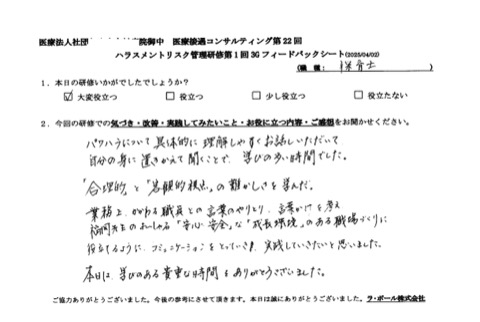 医療法人社団 院御中 医療接遇コンサルティング第22回
ハラスメントリスク管理研修第1回3Gフィードバックシート(2025/04/02)
(職 種: 保育士 )
1．本日の研修いかがでしたでしょうか？
☑ 大変役立つ □ 役立つ □ 少し役立つ □ 役立たない
2．今回の研修での気づき・改善・実践してみたいこと・お役に立つ内容・ご感想をお聞かせください。
パワハラについて具体的に理解しやすくお話しいただいて
自分の身に置きかえて聞くことで、学びの多い時間でした。
「合理的」と「客観的視点」の難かしさを学んだ。
業務上、かかわる職員との言葉のやりとり、言葉かけを考え
のおっしゃる「安心安全」な「成長環境」のある職場づくりに
役立てるように、コミュニケーションをとっていき、実践していきたいと思いました。
本日は、学びのある貴重な時間をありがとうございました。
ご協力ありがとうございました。今後の参考にさせて頂きます。本日は誠にありがとうございました。ラ・ポール株式会社